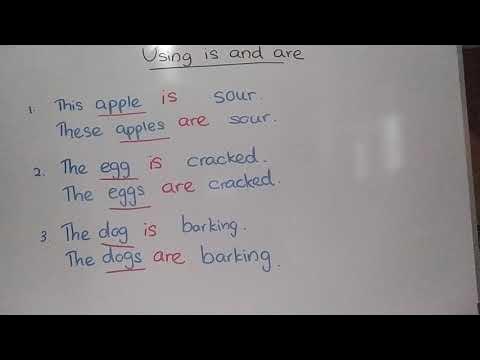 Using is and are
1. This apple is sour.
These apples are sour.
2. The egg is cracked.
The eggs are cracked.
3 The dog is barking.
The dogs are barking.